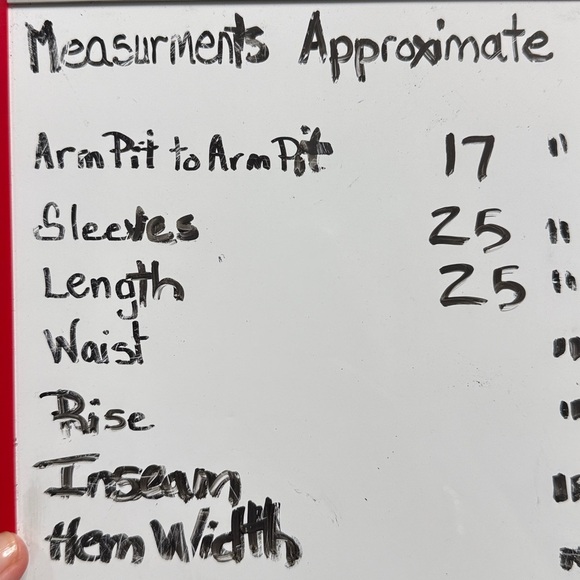 Measurments Approximate
Arm Pit to Arm Pit 17 "
Sleeves 25 "
Length 25 "
Waist "
Rise "
Inseam "
Hem Width "